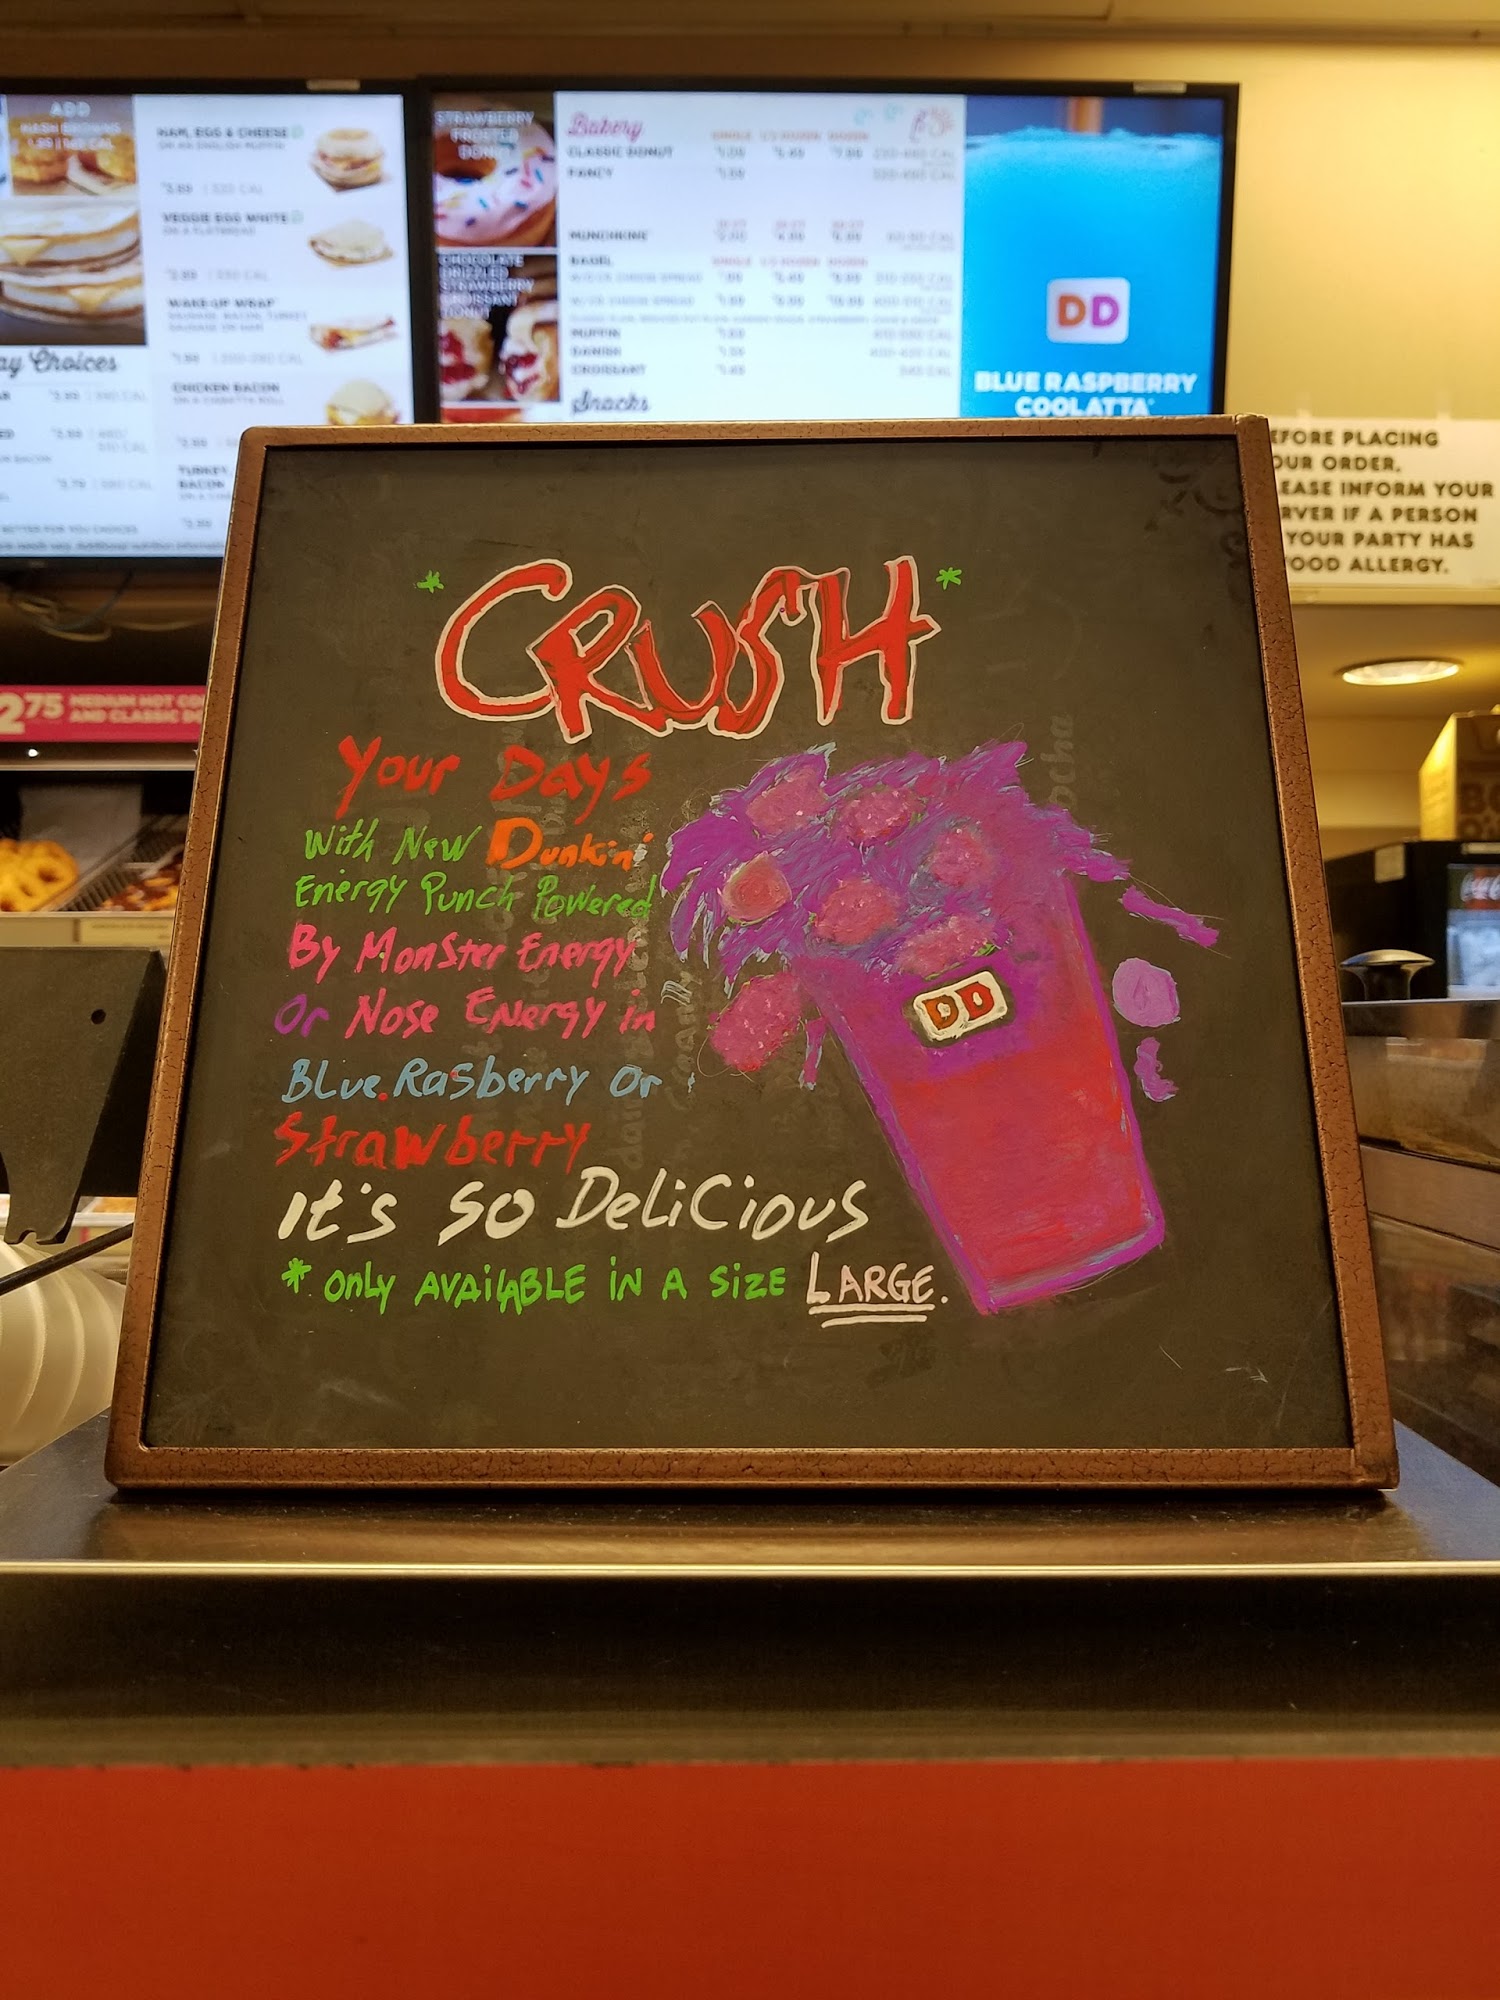 ADD
HASH BROWNS
HAM, EGG & CHEESE
ON AN ENGLISH MUFFIN
VEGGIE EGG WHITE
ON A FLATBREAD
WAKE-UP WRAP
CHICKEN BACON
TURKEY
BACON
ay Choices
STRAWBERRY
FROSTED
DONUT
CHOCOLATE
DRIZZLED
STRAWBERRY
CROISSANT
DONUT
Bakery
SINGLE 1/2 DOZEN DOZEN
CLASSIC DONUT
FANCY
MUNCHKINS
BAGEL
MUFFIN
DANISH
CROISSANT
Snacks
DD
BLUE RASPBERRY
COOLATTA
EFORE PLACING
OUR ORDER,
EASE INFORM YOUR
RVER IF A PERSON
YOUR PARTY HAS
OOD ALLERGY.
275 MEDIUM HOT CO
AND CLASSIC DO
* CRUSH *
Your Days
With New Dunkin'
Energy Punch Powered
By Monster Energy
Or Nose Energy in
Blue.Rasberry Or
Strawberry
it's so Delicious
* only AVAiLABLE iN A SiZE LARGE.
DD